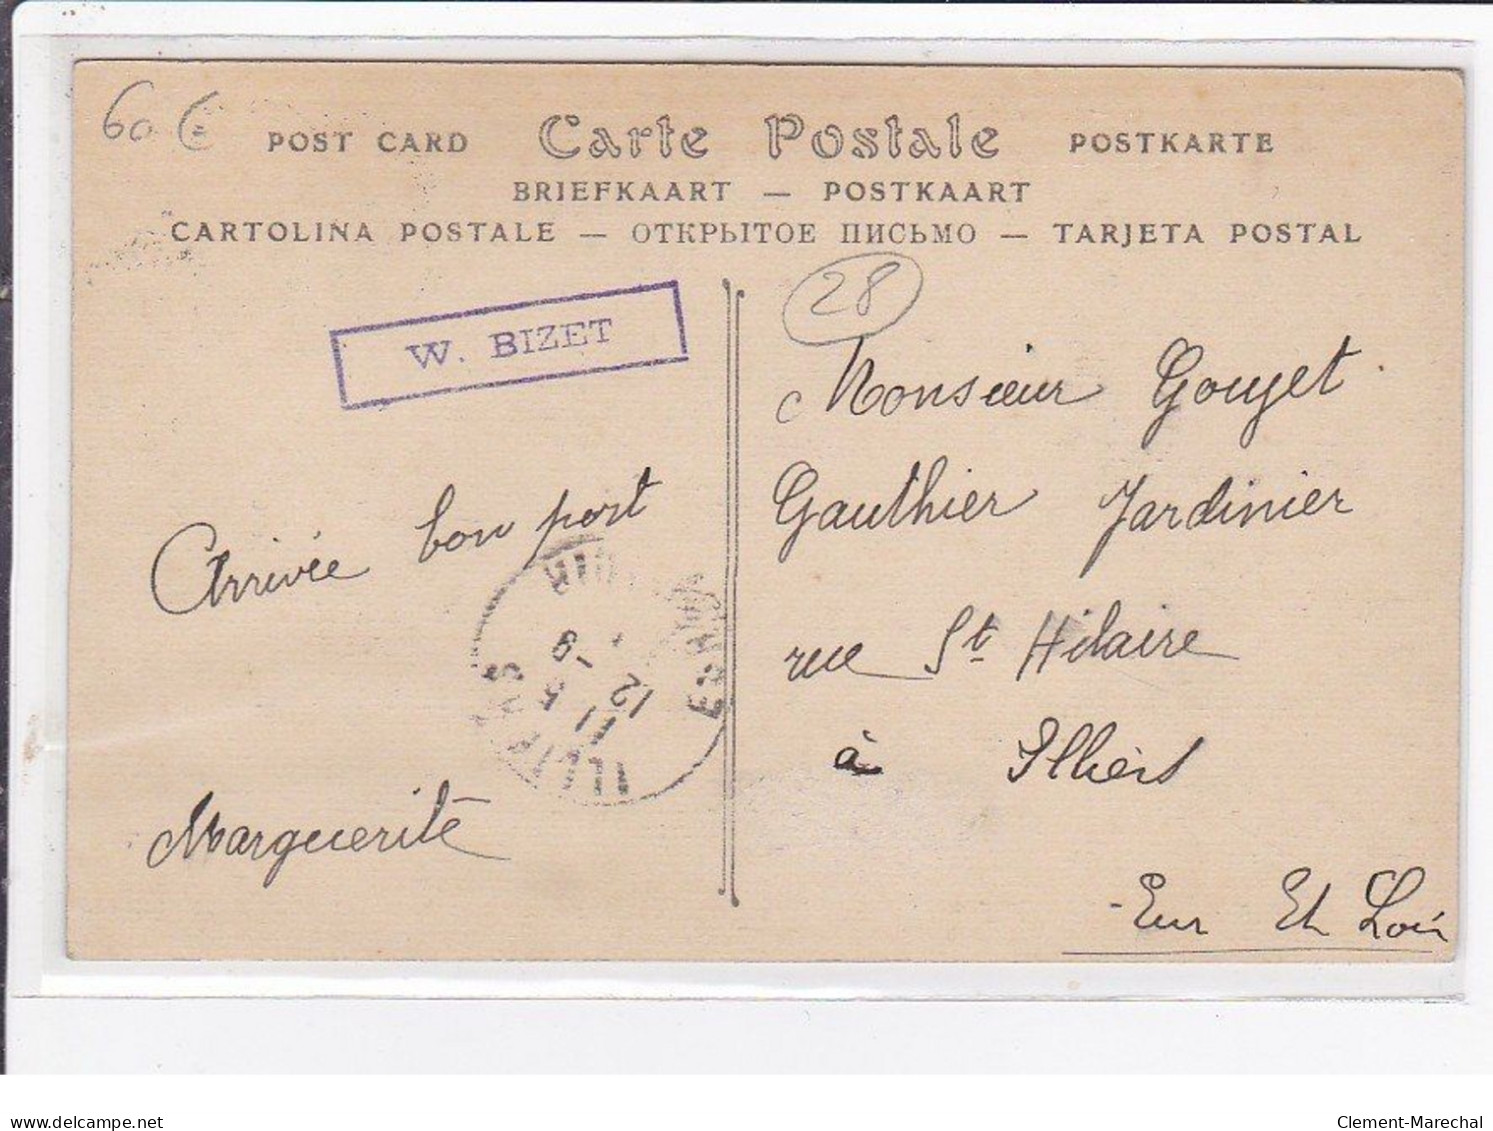 60 €
POST CARD Carte Postale POSTKARTE
BRIEFKAART — POSTKAART
CARTOLINA POSTALE — ОТКРЫТОЕ ПИСЬМО — TARJETA POSTAL
W. BIZET
28
Arrivée bon port
Marguerite
Monsieur Gouget
Gauthier Jardinier
rue St Hilaire
à Illiers
Eur Et Loir
12 - 9
5 11
delcampe.net
Clement-Marechal